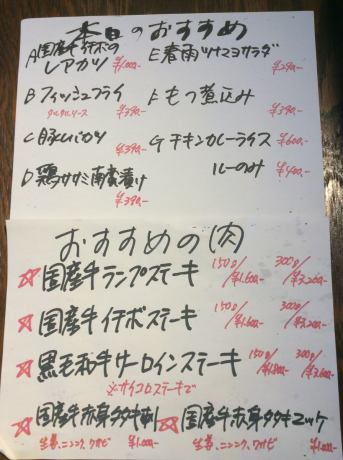 本日のおすすめ
A 国産牛イチボの
レアカツ ¥1,000-
E 春雨ツナマヨサラダ
¥290-
B フィッシュフライ
タルタルソース ¥390-
F もつ煮込み
¥390-
C 豚ハムカツ
¥390-
G チキンカレーライス
¥600-
ルーのみ
¥400-
D 鶏ササミ南蛮漬け
¥390-
おすすめの肉
☆国産牛ランプステーキ 150g/¥1,600- 300g/¥3,200-
☆国産牛イチボステーキ 150g/¥1,600- 300g/¥3,200-
☆黒毛和牛サーロインステーキ 150g/¥1,800- 300g/¥3,600-
※サイコロステーキで
☆国産牛赤身タタキ刺
生姜、ニンニク、ワサビ ¥1,000-
☆国産牛赤身タタキユッケ
生姜、ニンニク、ワサビ ¥1,000-